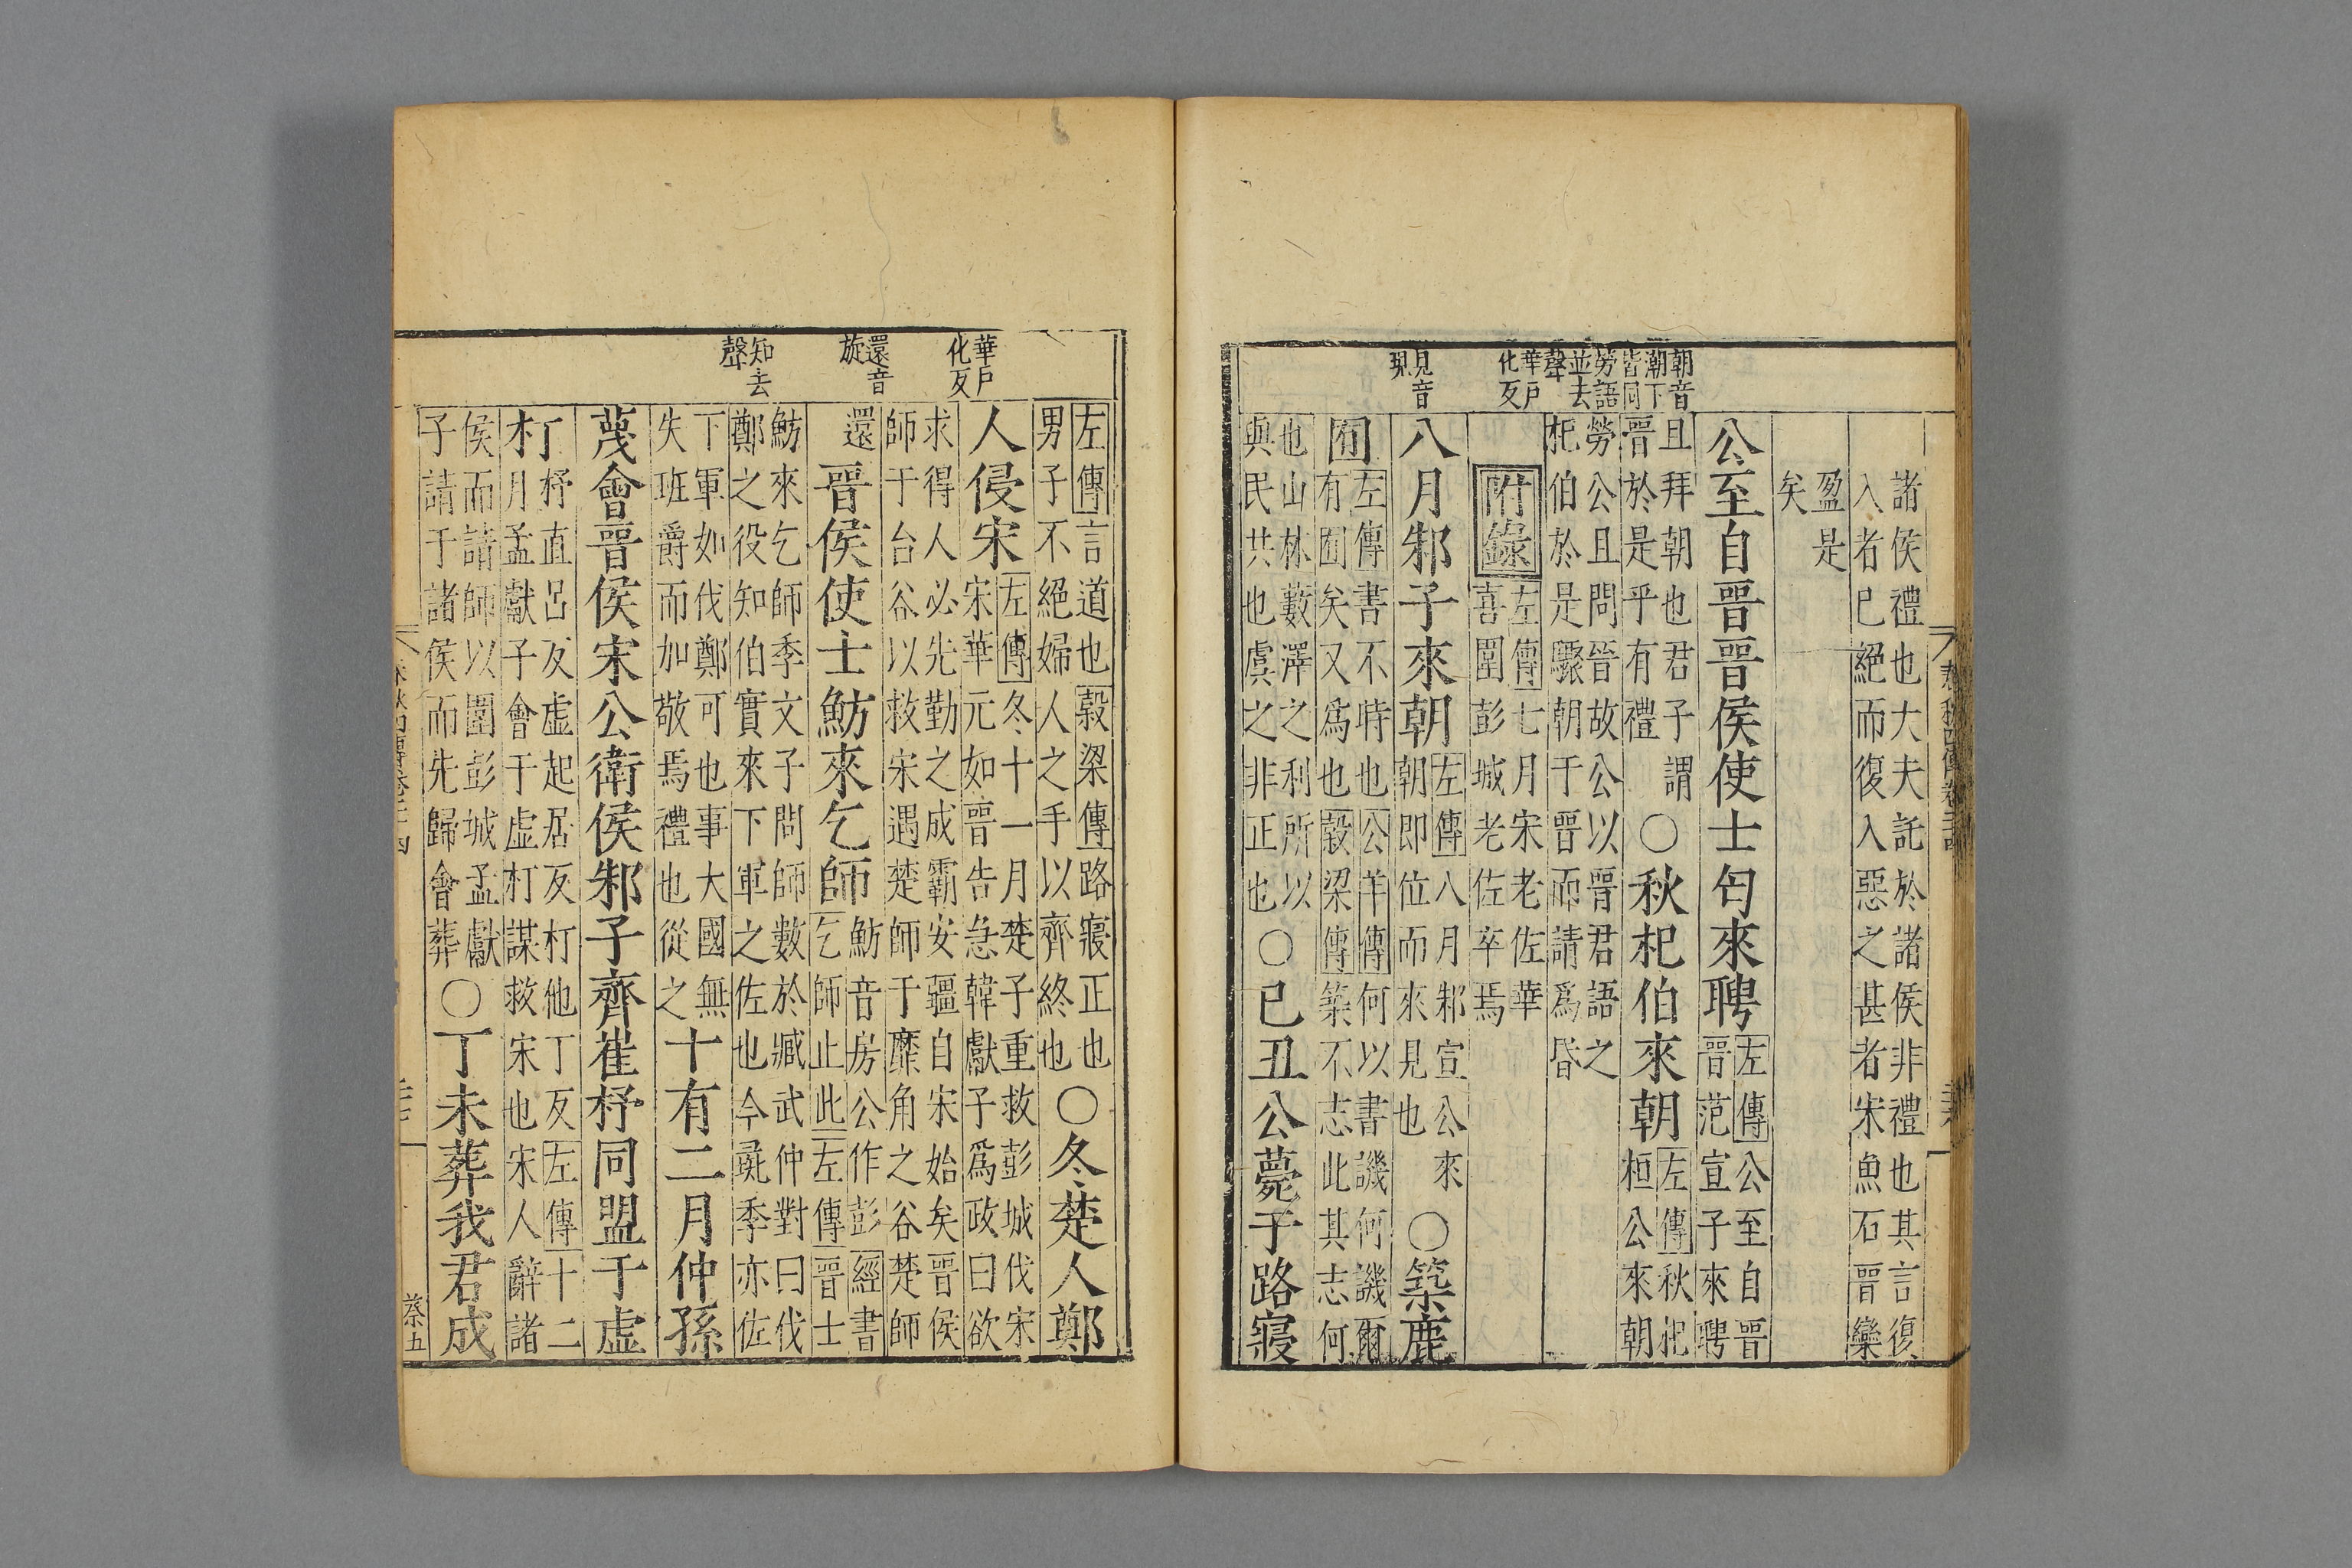 諸侯禮也大夫託於諸侯非禮也其言復
入者已絕而復入惡之甚者宋魚石晉欒
盈是
矣
公至自晉晉侯使士匄來聘
左傳公至自晉
晉范宣子來聘
且拜朝也君子謂
晉於是乎有禮
○秋杞伯來朝
左傳秋杞
桓公來朝
勞公且問晉故公以晉君語之
杞伯於是驟朝于晉而請爲昏
附錄
左傳七月宋老佐華
喜圍彭城老佐卒焉
八月邾子來朝
左傳八月邾宣公來
朝即位而來見也
○築鹿
囿
左傳書不時也公羊傳何以書譏何譏爾
有囿矣又爲也穀梁傳築不志此其志何
也山林藪澤之利所以
與民共也虞之非正也
○己丑公薨于路寢
朝音
潮下
皆同
勞語
並去
聲
華戶
化反
見音
現
左傳言道也穀梁傳路寢正也
男子不絕婦人之手以齊終也
○冬楚人鄭
人侵宋
左傳冬十一月楚子重救彭城伐宋
宋華元如晉告急韓獻子爲政曰欲
求得人必先勤之成霸安疆自宋始矣晉侯
師于台谷以救宋遇楚師于靡角之谷楚師
還
晉侯使士魴來乞師
魴音房公作彭經書
乞師止此左傳晉士
魴來乞師季文子問師數於臧武仲對曰伐
鄭之役知伯實來下軍之佐也今彘季亦佐
下軍如伐鄭可也事大國無
失班爵而加敬焉禮也從之
十有二月仲孫
蔑會晉侯宋公衛侯邾子齊崔杼同盟于虛
朾
杼直呂反虛起居反朾他丁反左傳十二
月孟獻子會于虛朾謀救宋也宋人辭諸
侯而請師以圍彭城孟獻
子請于諸侯而先歸會葬
○丁未葬我君成
華戶
化反
還音
旋
知去
聲
蔡五